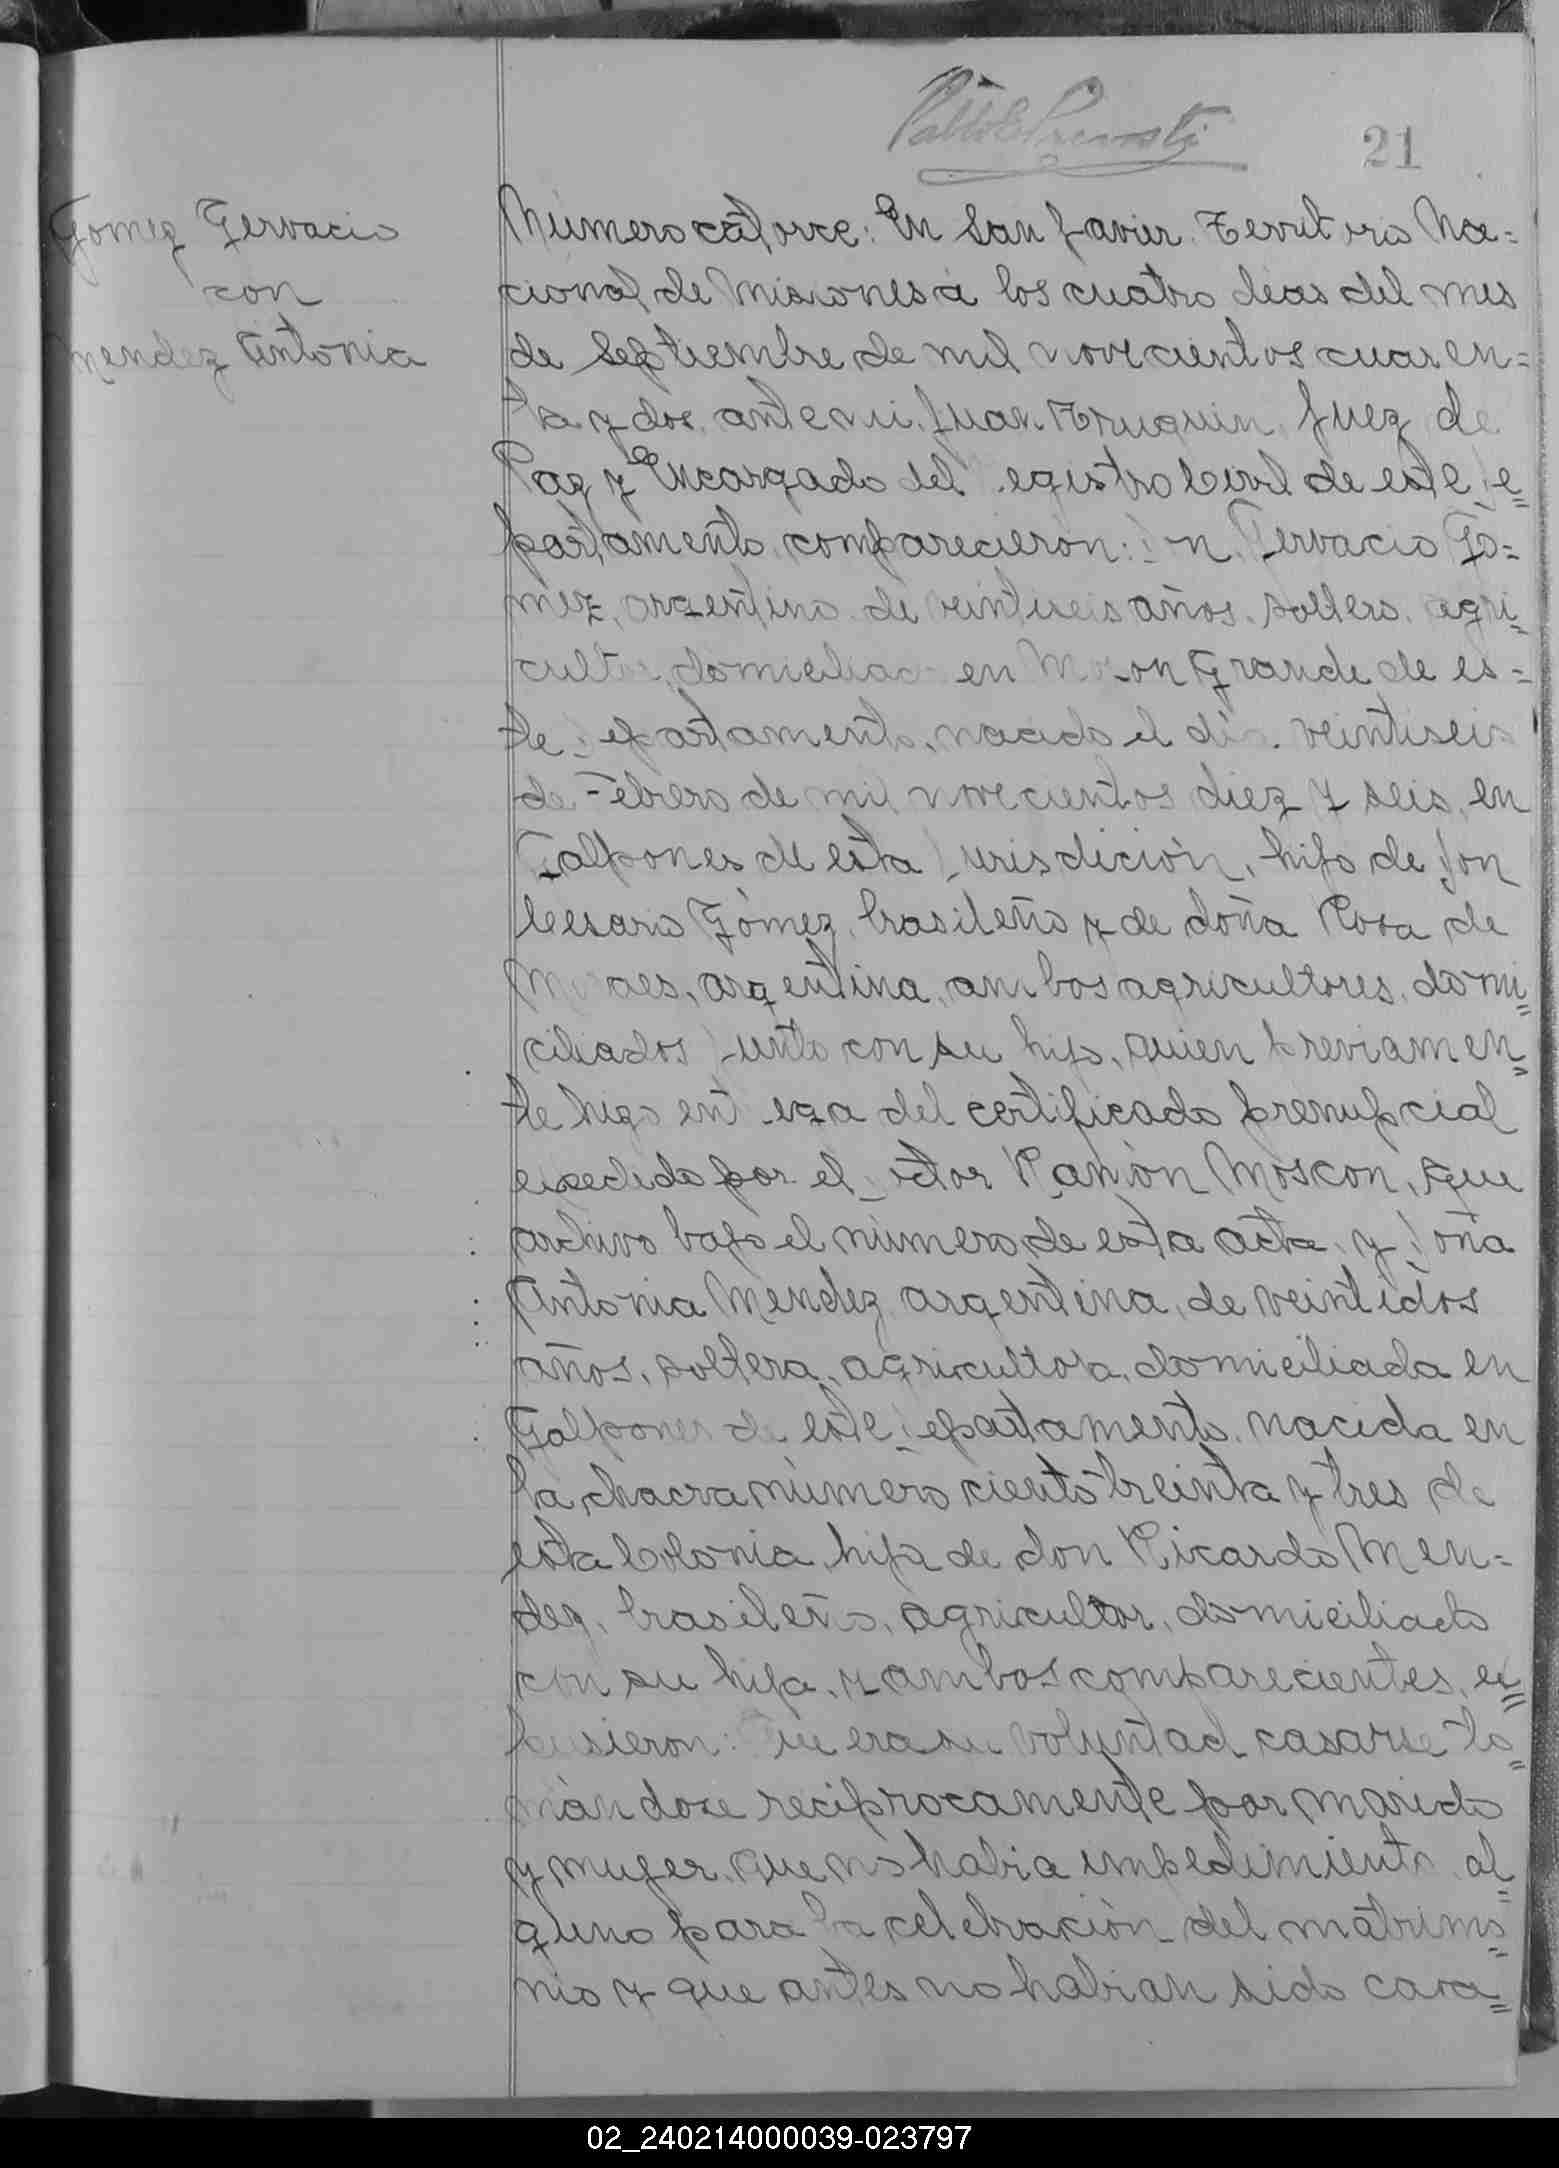 Pablo E Prevosti
21
Gomez Gervacio
con
Mendez Antonia
Número catorce: En San Javier. Territorio Na=
cional de Misiones á los cuatro dias del mes
de Septiembre de mil novecientos cuaren=
ta y dos, ante mi, Juan Juez de
Paz y Encargado del Registro Civil de este De=
partamento, comparecieron: Don Gervacio Gó=
mez, argentino de veintiseis años. soltero. agri=
cultor, domiciliado en Mojon Grande de es=
te Departamento, nacido el día veintiseis
de Febrero de mil novecientos diez y seis, en
Galpones de esta Jurisdición, hijo de Don
Cesario Gómez, brasileño y de doña Rosa de
Moraes, argentina, ambos agricultores, domi=
ciliados junto con su hijo, quien previamen=
te hizo entrega del certificado prenupcial
expedido por el Doctor Ramón Moscon, que
archivo bajo el número de esta acta, y Doña
Antonia Mendez argentina, de veintidos
años, soltera, agricultora, domiciliada en
Galpones de este Departamento, nacida en
la chacra número ciento treinta y tres de
esta Colonia, hija de don Ricardo Men=
dez, brasileño, agricultor, domiciliado
con su hija, y ambos comparecientes, ex=
pusieron: Que era su voluntad casarse to=
mándose recíprocamente por marido
y mujer, que no habia impedimiento al=
guno para la celebración del matrimo=
nio y que antes no habian sido casa=
02_240214000039-023797